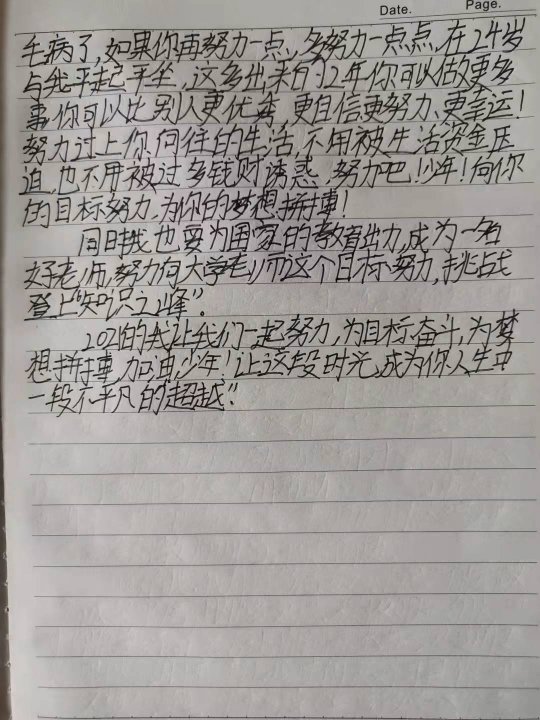 Date. Page.
毛病了,如果你再努力一点、多努力一点点,在24岁
与我平起平坐,这多出来的12年你可以做更多
事,你可以比别人更优秀,更自信更努力、更幸运!
努力过上你向往的生活,不用被生活资金压
迫,也不用被过多钱财诱惑,努力吧!少年!向你
的目标努力.为你的梦想拼搏!
同时我也要为国家的教育出力,成为一名
好老师,努力向大学老师这个目标努力,挑战
登上“知识之峰”.
2021的我让我们一起努力,为目标奋斗,为梦
想拼搏,加油少年!让这段时光,成为你人生中
一段不平凡的“超越”.